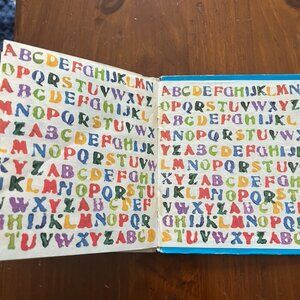 ABCDEFGHIJKLMN
OPQRSTUVWXYZ
ABCDEFGHIJKL
MNOPQRSTUVWX
YZABCDEFGHIJ
LMNOPQRSTUV
XYZABCDEFGH
JKLMNOPQRST
VWXYZABCDEF
GHIJKLMNOP
TUVWXYZABCD
ABCDEFGHIJKLMN
OPQRSTUVWXYZ
ABCDEFGHIJKL
NOPQRSTUVWX
YZABCDEFGHIJ
LMNOPQRSTUV
XYZABCDEFGH
JKLMNOPQRST
UVWXYZABCDEF
GHIJKLMNOP
TUVWXYZABCD